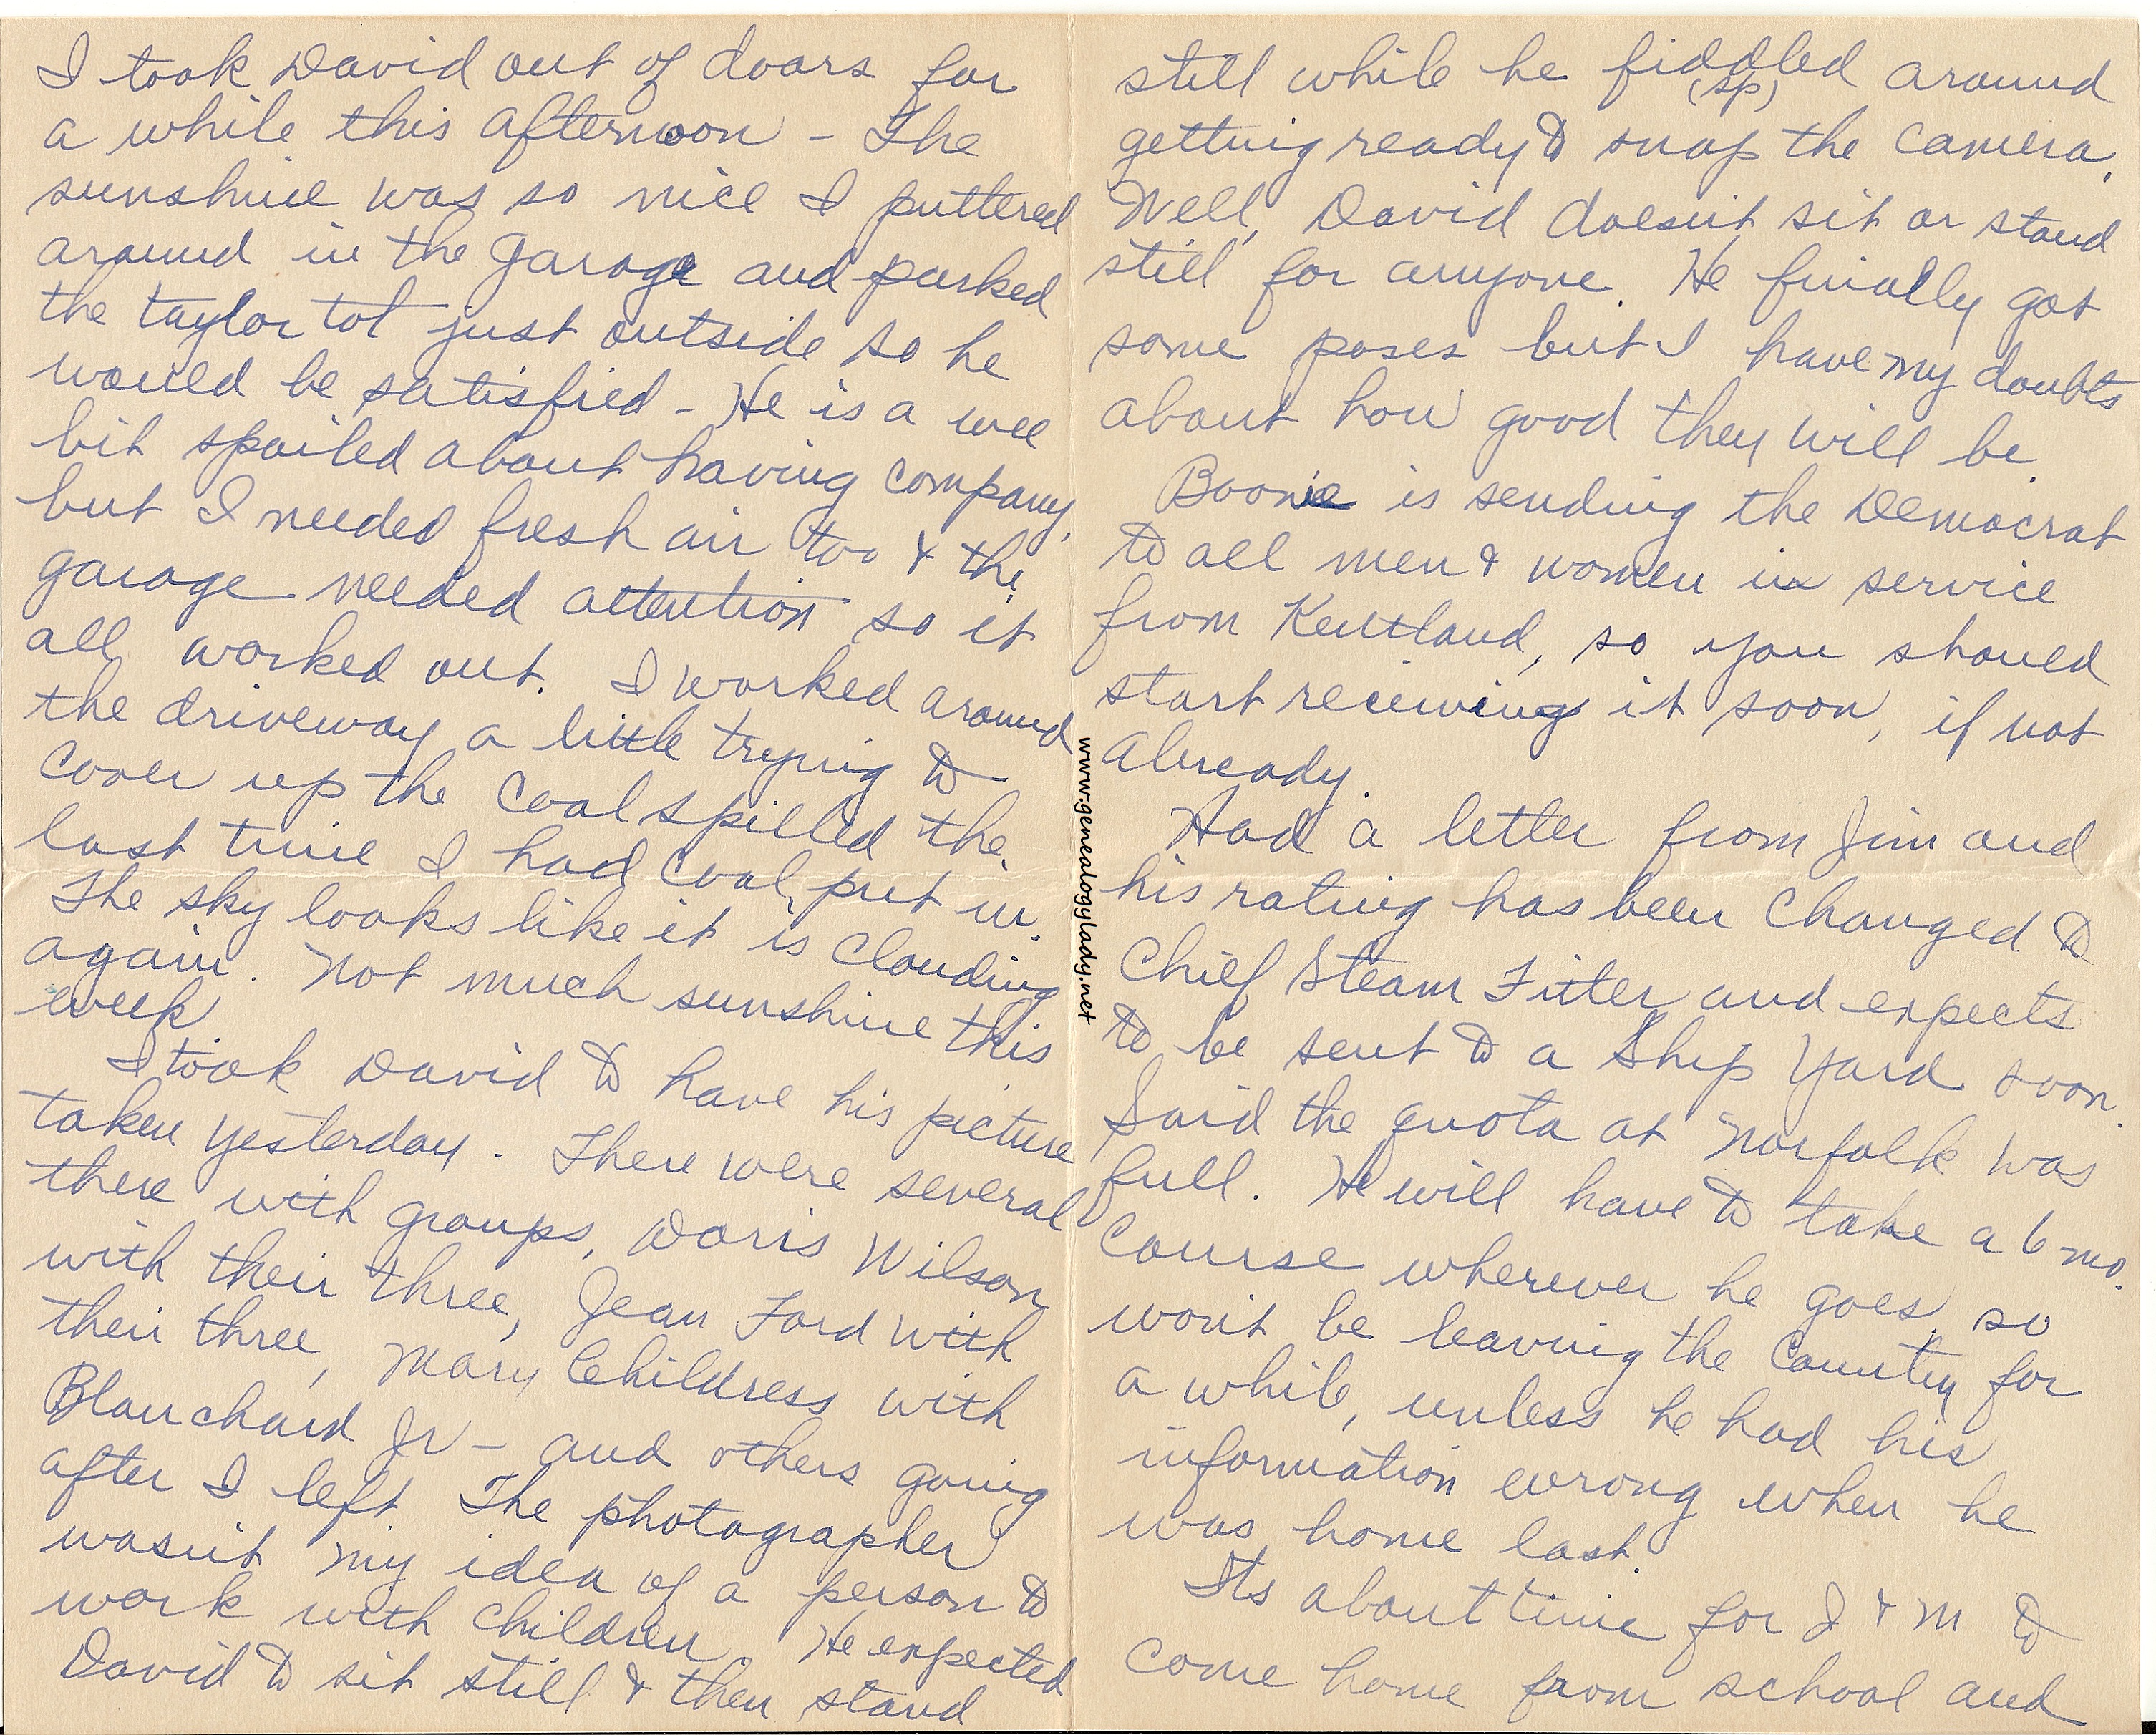 I took David out of doors for
a while this afternoon - The
sunshine was so nice I puttered
around in the garage and parked
the taylor tot just outside so he
would be satisfied - He is a wee
bit spoiled about having company,
but I needed fresh air too & the
garage needed attention so it
all worked out. I worked around
the driveway a little trying to
cover up the coal spilled the
last time I had coal put in.
The sky looks like it is clouding
again. Not much sunshine this
week.
I took David to have his picture
taken yesterday. There were several
there with groups, Doris Wilson
with their three, Jean Ford with
their three, Mary Childress with
Blanchard Jr - and others going
after I left. The photographer
wasn't my idea of a person to
work with children. He expected
David to sit still & then stand
still while he fiddled around
(sp)
getting ready to snap the camera.
Well, David doesn't sit or stand
still for anyone. He finally got
some poses but I have my doubts
about how good they will be.
Boonie is sending the Democrat
to all men & women in service
from Kentland, so you should
start receiving it soon, if not
already.
Had a letter from Jim and
his rating has been changed to
Chief Steam Fitter and expects
to be sent to a Ship Yard soon.
Said the quota at Norfolk was
full. He will have to take a 6 mo.
course wherever he goes, so
won't be leaving the country for
a while, unless he had his
information wrong when he
was home last.
Its about time for J & M to
come home from school and
www.genealogylady.net